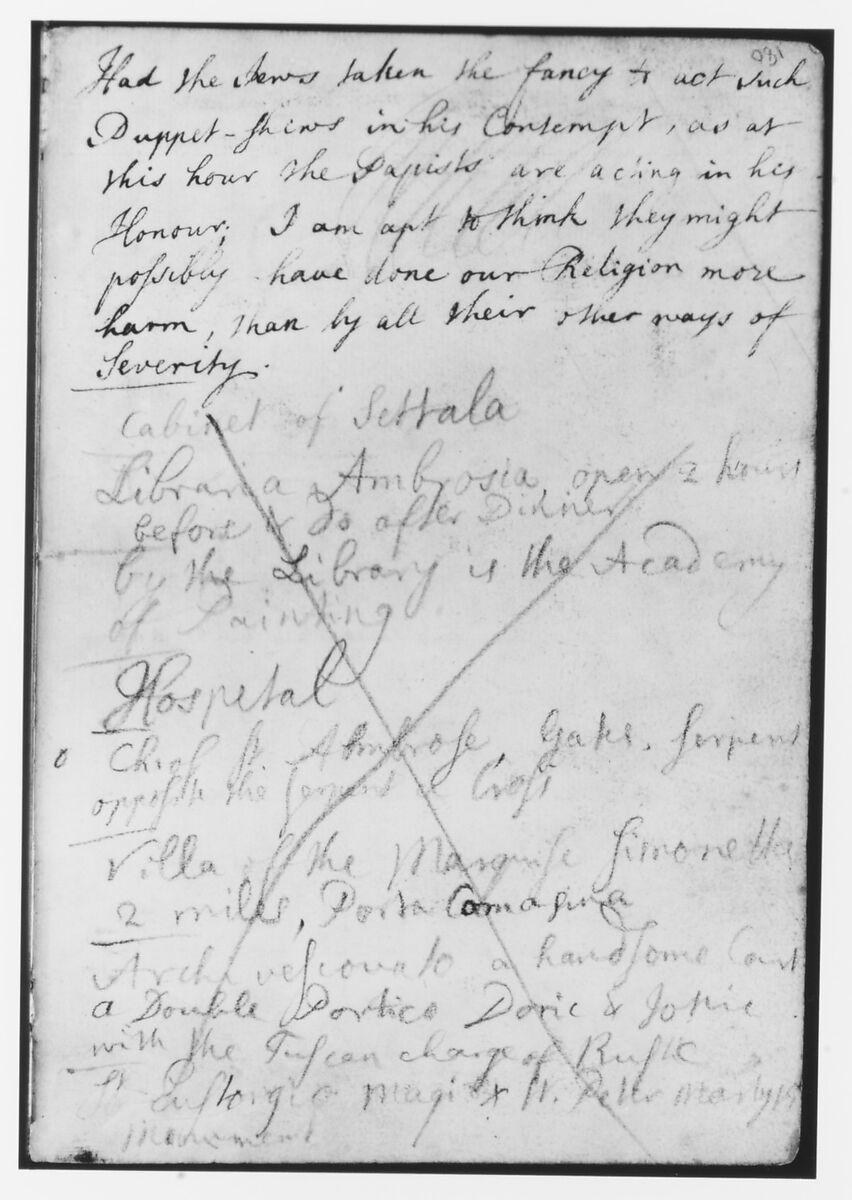 180
Had the Jews taken the fancy to act such
Puppet-shews in his Contempt, as at
this hour the Papists are acting in his
Honour; I am apt to think they might
possibly have done our Religion more
harm, than by all their other ways of
Severity.
Cabinet of Settala
Libraria Ambrosia open 2 hours
before & do after Dinner
by the Library is the Academy
of Painting
Hospetal
o Chies St Ambrose, Gates. Serpent
opposite the serpent a Cross
Villa of the Marquise Simonetta
2 miles, Porta Comasina
Archivescovato a handsome Court
a Double Portico Doric & Jonic
with the Tuscan charge of Rustic
St Eustorgio Magi & St. Peter Martyrs
Monument